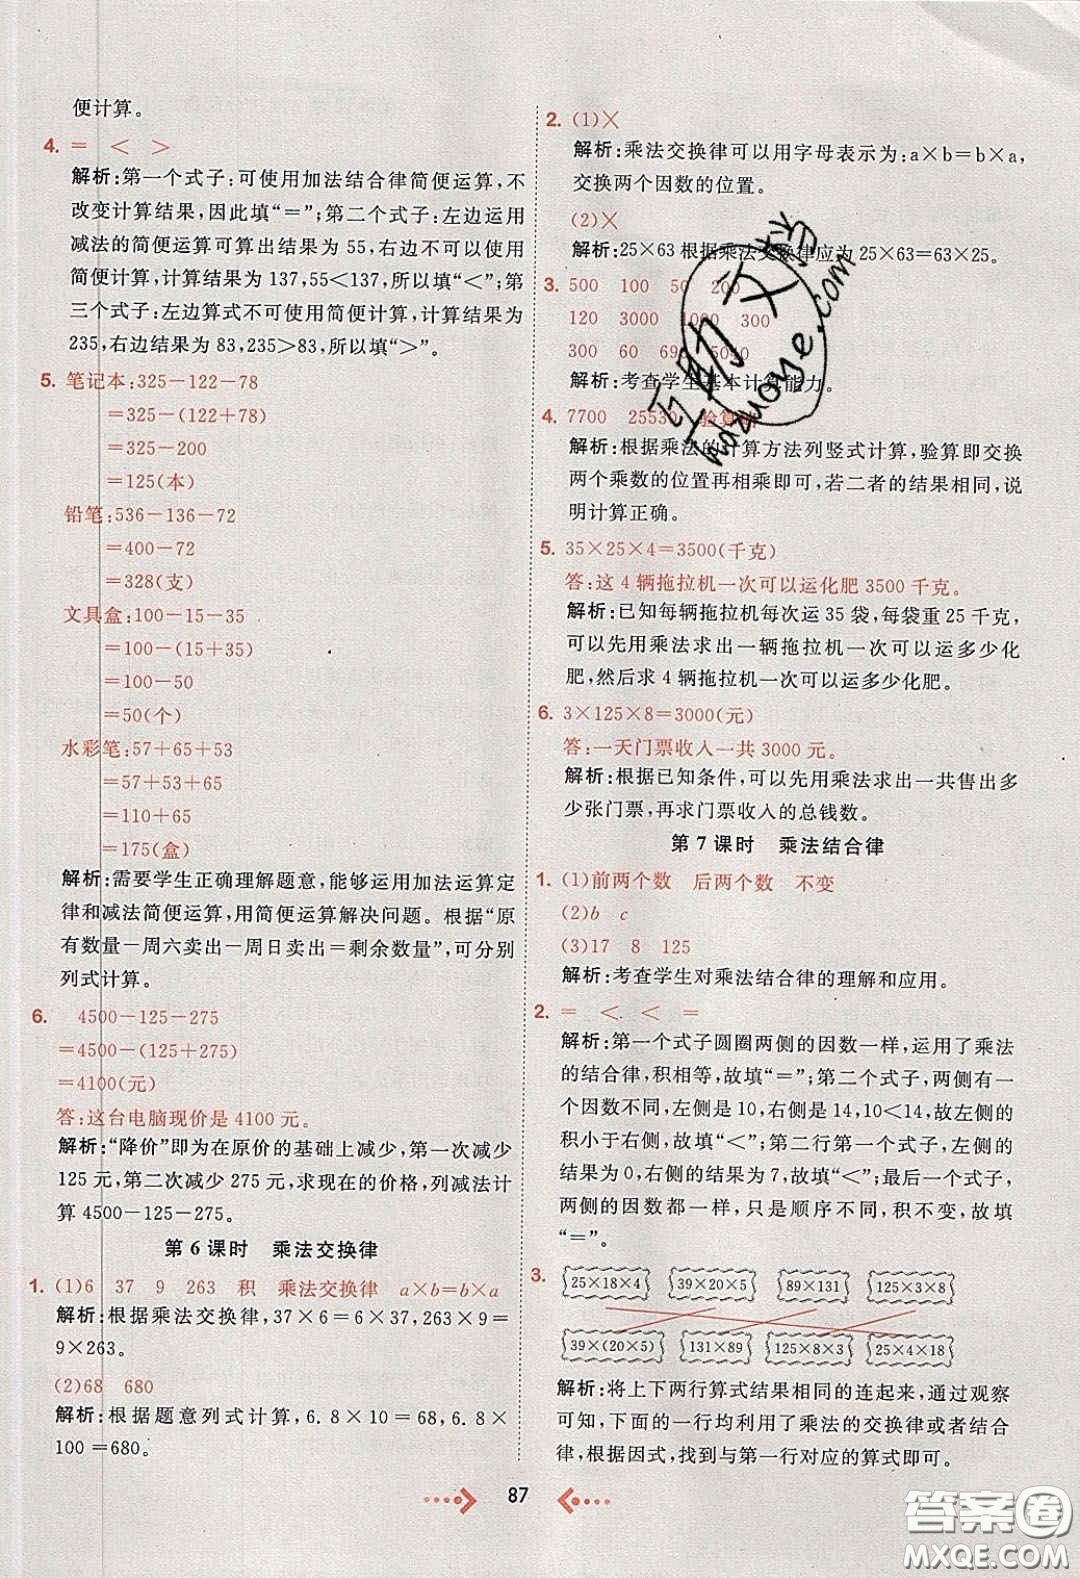 便计算。
4. = < >
解析:第一个式子:可使用加法结合律简便运算,不
改变计算结果,因此填“=”;第二个式子:左边运用
减法的简便运算可算出结果为 55,右边不可以使用
简便计算,计算结果为 137,55<137,所以填“<”;第
三个式子:左边算式不可使用简便计算,计算结果为
235,右边结果为 83,235>83,所以填“>”。
5. 笔记本:325-122-78
=325-(122+78)
=325-200
=125(本)
铅笔:536-136-72
=400-72
=328(支)
文具盒:100-15-35
=100-(15+35)
=100-50
=50(个)
水彩笔:57+65+53
=57+53+65
=110+65
=175(盒)
解析:需要学生正确理解题意,能够运用加法运算定
律和减法简便运算,用简便运算解决问题。根据“原
有数量-周六卖出-周日卖出=剩余数量”,可分别
列式计算。
6. 4500-125-275
=4500-(125+275)
=4100(元)
答:这台电脑现价是 4100 元。
解析:“降价”即为在原价的基础上减少,第一次减少
125 元,第二次减少 275 元,求现在的价格,列减法计
算 4500-125-275。
第 6 课时 乘法交换律
1. (1)6 37 9 263 积 乘法交换律 a×b=b×a
解析:根据乘法交换律,37×6=6×37,263×9=
9×263。
(2)68 680
解析:根据题意列式计算,6.8×10=68,6.8×
100=680。
2. (1)×
解析:乘法交换律可以用字母表示为:a×b=b×a,
交换两个因数的位置。
(2)×
解析:25×63 根据乘法交换律应为 25×63=63×25。
3. 500 100 50 200
120 3000 1000 300
300 60 690 5040
解析:考查学生基本计算能力。
4. 7700 25530 验算略
解析:根据乘法的计算方法列竖式计算,验算即交换
两个乘数的位置再相乘即可,若二者的结果相同,说
明计算正确。
5. 35×25×4=3500(千克)
答:这 4 辆拖拉机一次可以运化肥 3500 千克。
解析:已知每辆拖拉机每次运 35 袋,每袋重 25 千克,
可以先用乘法求出一辆拖拉机一次可以运多少化
肥,然后求 4 辆拖拉机一次可以运多少化肥。
6. 3×125×8=3000(元)
答:一天门票收入一共 3000 元。
解析:根据已知条件,可以先用乘法求出一共售出多
少张门票,再求门票收入的总钱数。
第 7 课时 乘法结合律
1. (1)前两个数 后两个数 不变
(2)b c
(3)17 8 125
解析:考查学生对乘法结合律的理解和应用。
2. = < < =
解析:第一个式子圆圈两侧的因数一样,运用了乘法
的结合律,积相等,故填“=”;第二个式子,两侧有一
个因数不同,左侧是 10,右侧是 14,10<14,故左侧的
积小于右侧,故填“<”;第二行第一个式子,左侧的
结果为 0,右侧的结果为 7,故填“<”,最后一个式子,
两侧的因数都一样,只是顺序不同,积不变,故填
“=”。
3. 25×18×4 39×20×5 89×131 125×3×8
39×(20×5) 131×89 125×8×3 25×4×18
解析:将上下两行算式结果相同的连起来,通过观察
可知,下面的一行均利用了乘法的交换律或者结合
律,根据因式,找到与第一行对应的算式即可。
87
互助文档
hdzuoye.com
答案圈
MXQE.COM